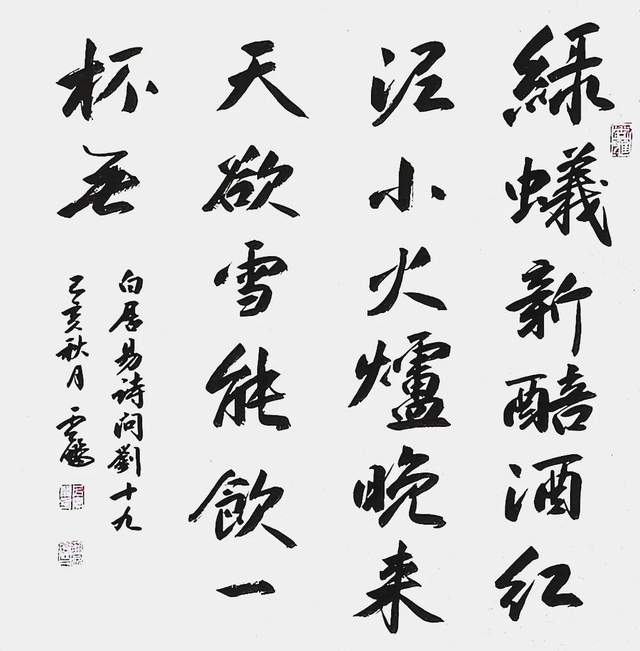 綠蟻新醅酒紅
泥小火爐晚来
天欲雪能飲一
杯無
白居易詩問劉十九
己亥秋月